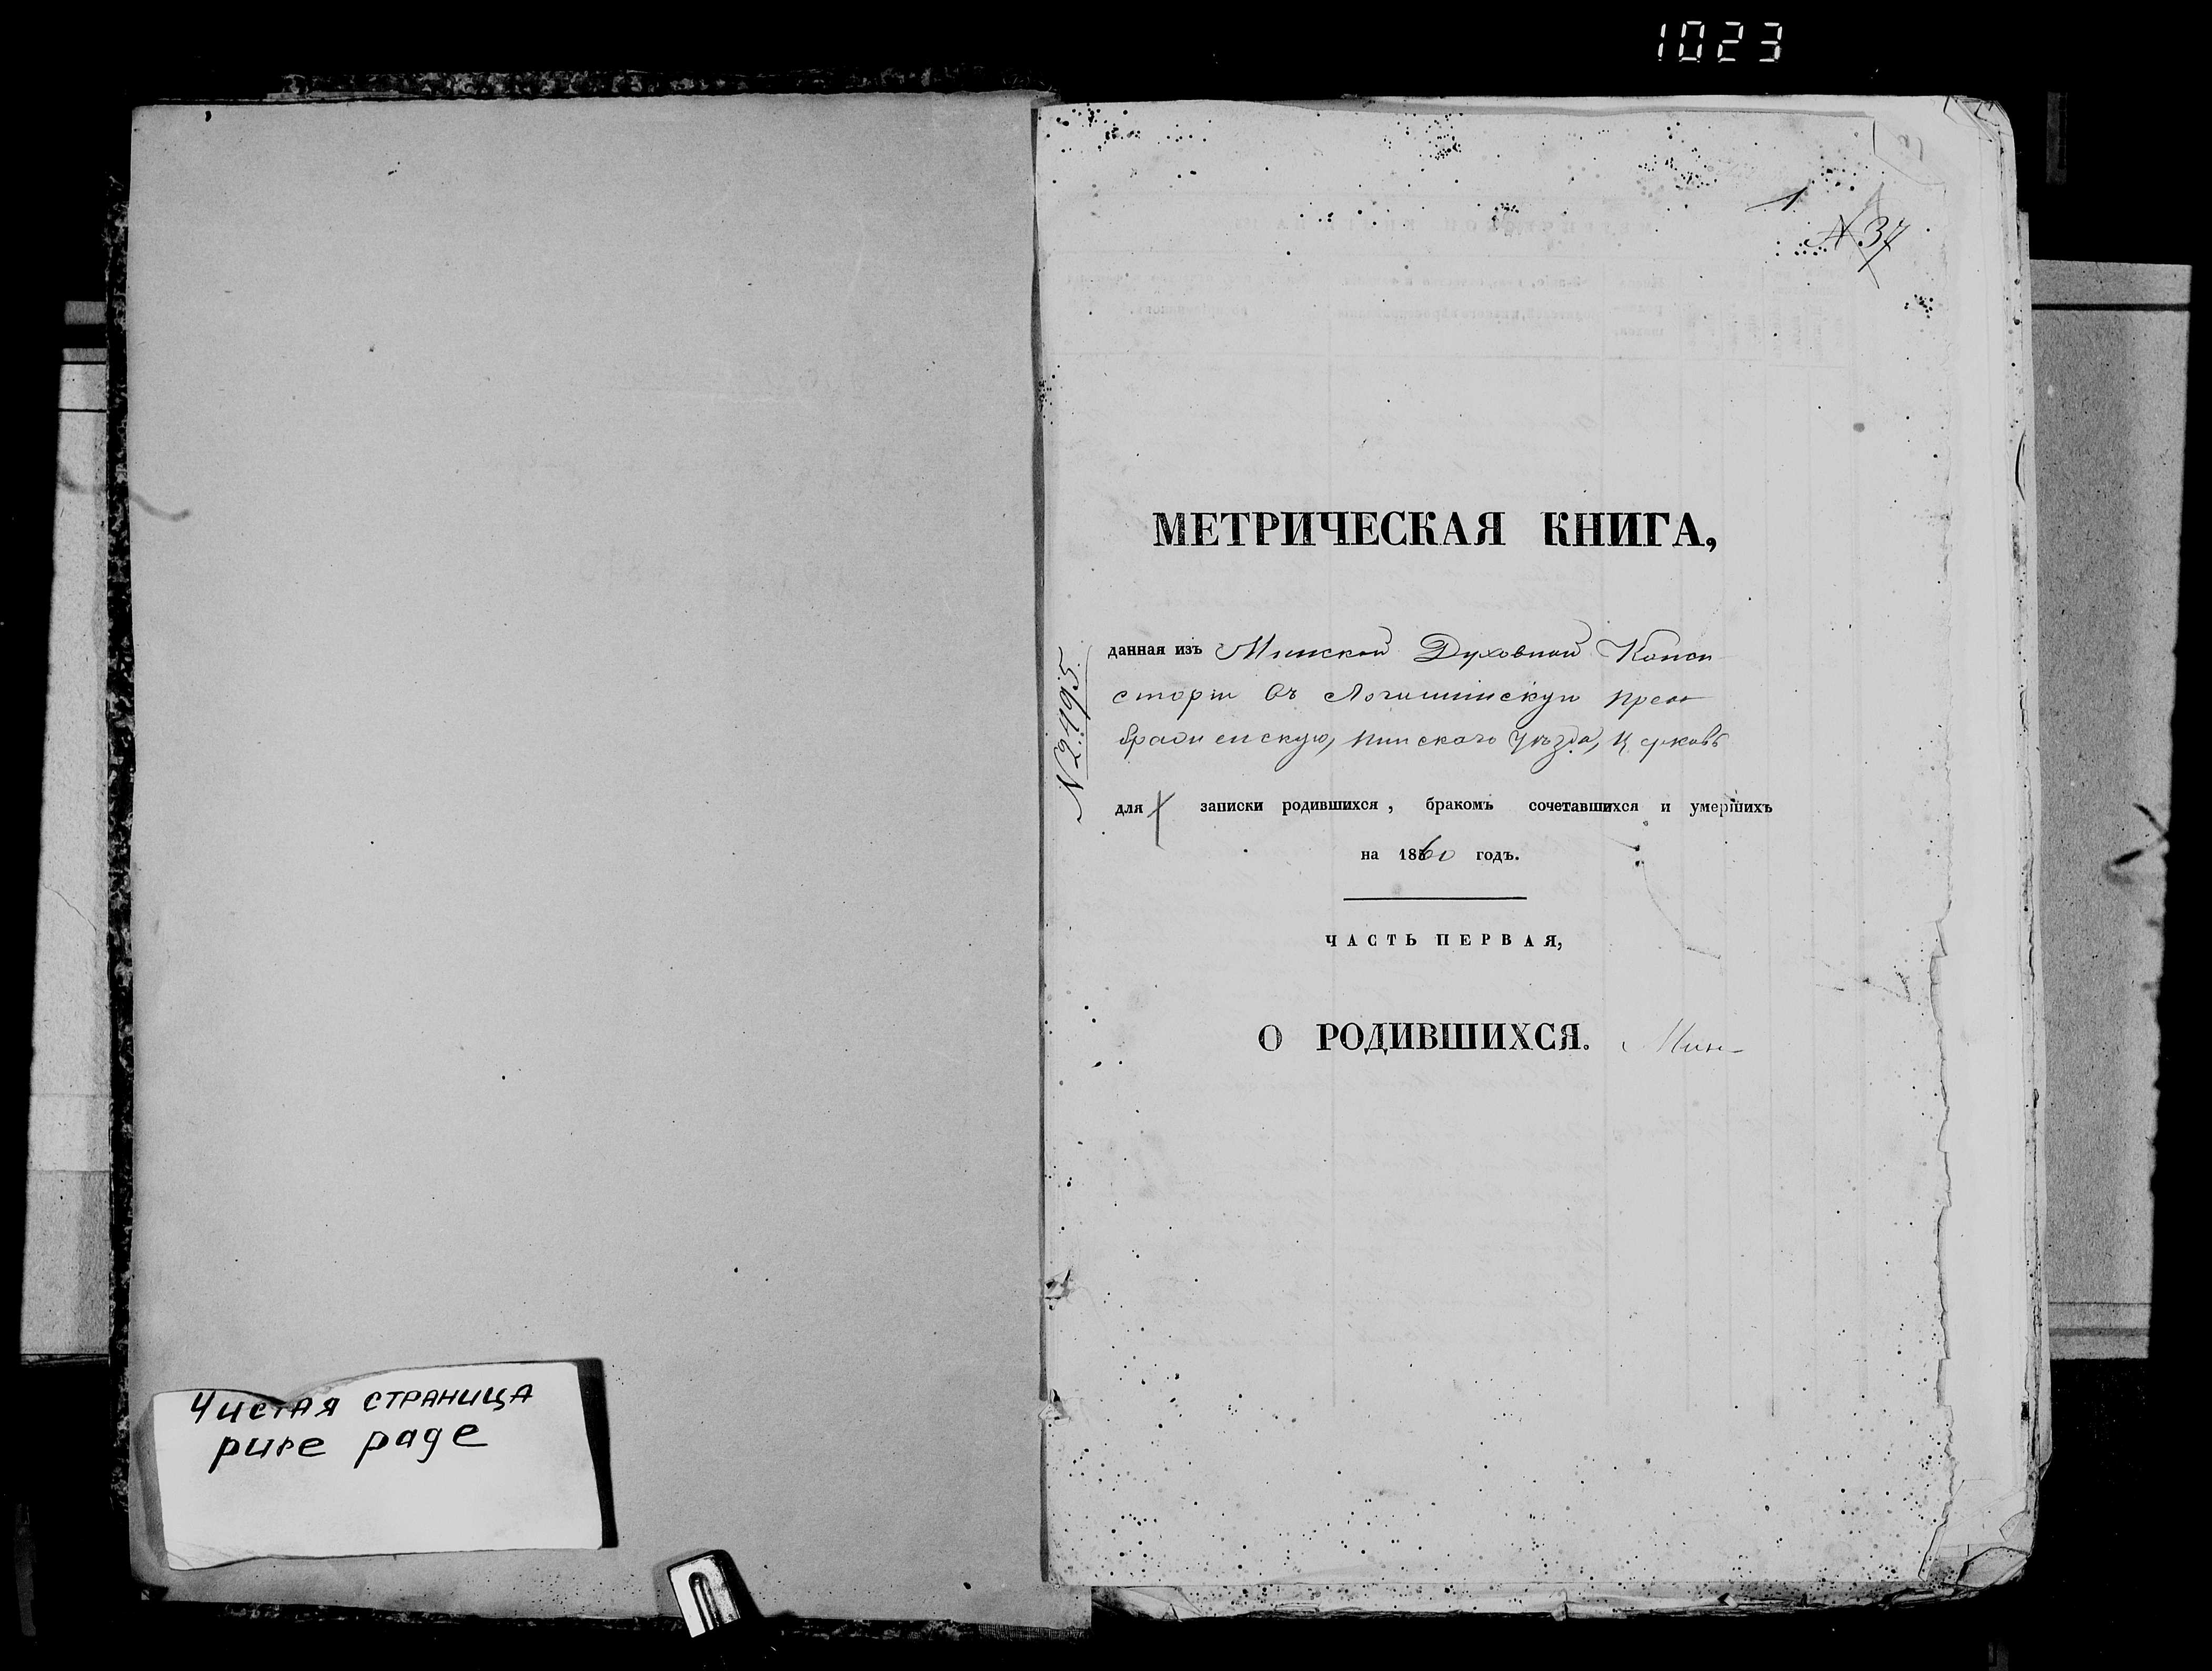 1023
Чистая страница
pure page
1
№ 37
МЕТРИЧЕСКАЯ КНИГА,
№ 2495.
данная изъ Минской Духовной Конси
сторіи въ Логишинскую Прео
браженскую, Пинскаго Уѣзда, Церковь
для записки родившихся, бракомъ сочетавшихся и умершихъ
на 1860 годъ.
ЧАСТЬ ПЕРВАЯ,
О РОДИВШИХСЯ. Мин-